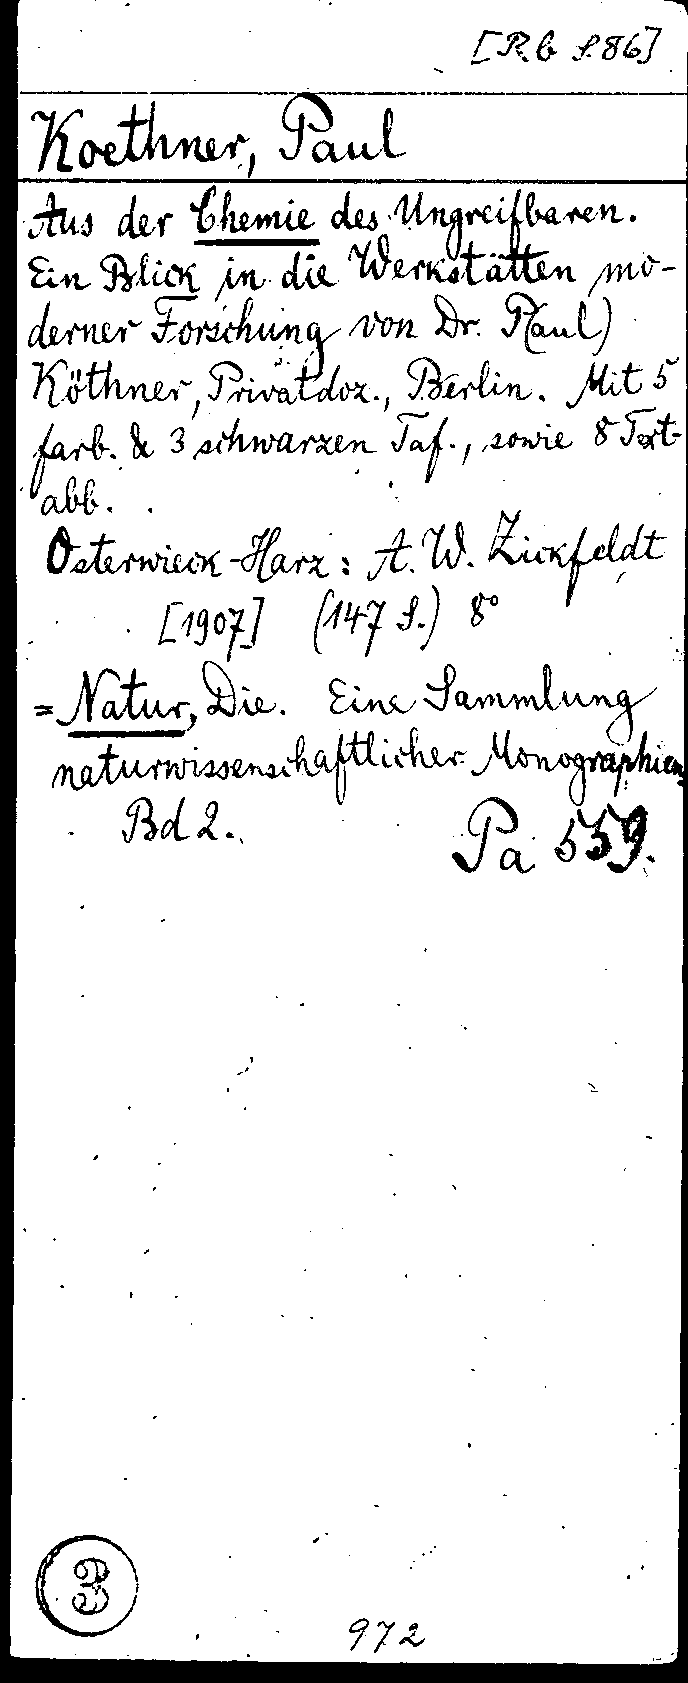 [Rb S.86]
Koethner, Paul
Aus der Chemie des Ungreifbaren.
Ein Blick in die Werkstätten mo-
derner Forschung von Dr. P(aul)
Köthner, Privatdoz., Berlin. Mit 5
farb. & 3 schwarzen Taf., sowie 8 Text-
abb.
Osterwieck-Harz: A. W. Zickfeldt
[1907] (147 S.) 8°
= Natur, Die. Eine Sammlung
naturwissenschaftlicher Monographien,
Bd 2.
Pa 559.
3
972